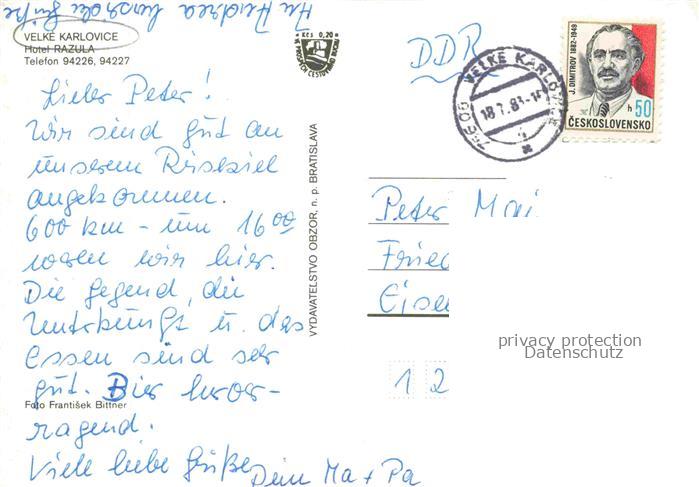 An Andrea besondere Grüße
VELKE KARLOVICE
Hotel RAZULA
Telefon 94226, 94227
Lieber Peter!
Wir sind gut an
unserem Reiseziel
angekommen.
600 km - um 16 00
waren wir hier.
Die Gegend, die
Unterkunft u. das
Essen sind sehr
gut. Bier hervor-
ragend.
Viele liebe Grüße Dein Ma + Pa
Foto František Bittner
VYDAVATEĽSTVO OBZOR, n. p. BRATISLAVA
Kčs 0,20
DDR
VELKÉ KARLOVICE
18.7.83
J. DIMITROV 1882-1949
h 50
ČESKOSLOVENSKO
Peter
Fried
Eisen
1 2
privacy protection
Datenschutz